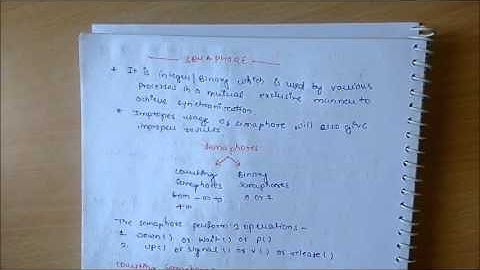 SEMAPHORE
* It is integer/Binary which is used by various
processes in a mutual exclusive manner to
achieve synchronization
* Improper usage of semaphore will also give
improper results
Semaphores
Counting Binary
Semaphores Semaphores
from -∞ to 0 or 1
+∞
The semaphore perform 2 operations -
1. Down() or wait() or P()
2. up() or signal() or V() or release()
Counting Semaphore